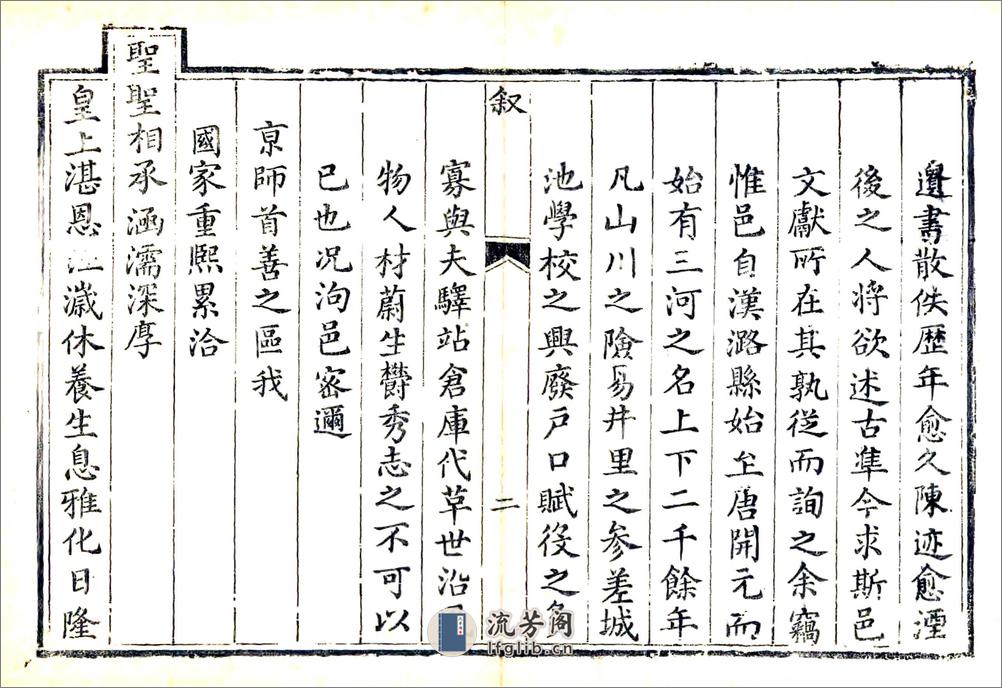 遺書散佚歷年愈久陳迹愈湮
後之人將欲述古準今求斯邑
文獻所在其孰從而詢之余竊
惟邑自漢潞縣始至唐開元而
始有三河之名上下二千餘年
凡山川之險易井里之參差城
池學校之興廢戶口賦役之
叙
二
寡與夫驛站倉庫代革世沿
物人材蔚生欝秀志之不可以
已也况泃邑密邇
京師首善之區我
國家重熙累洽
聖聖相承涵濡深厚
皇上湛恩濊休養生息雅化日隆
流芳阁
lfglib.cn